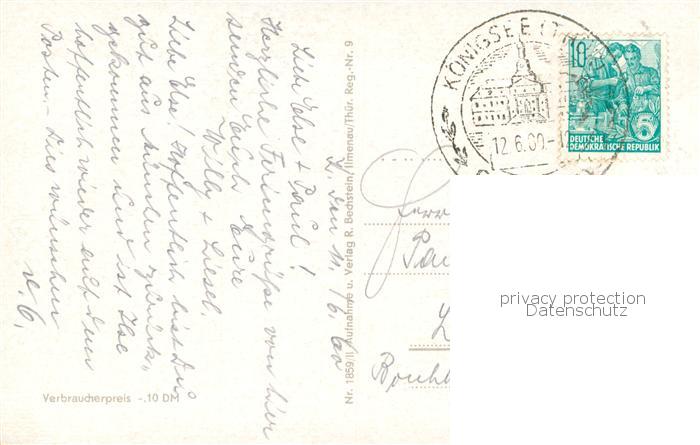 L. den 11./6. 60
Liebe Else + Paul!
Herzliche Feriengrüße von hier
senden Euch Eure
Willy + Liesel.
Liebe Else! Hoffentlich bist Du
gut aus München zurück-
gekommen und ist Ilse
hoffentlich wieder auf dem
Posten. Dies wünschen
d. O.
Verbraucherpreis -.10 DM
Nr. 1859/II Aufnahme u. Verlag R. Bechstein, Ilmenau/Thür. Reg.-Nr. 9
KÖNIGSEE (THÜR
12.6.60-1
10
5
DEUTSCHE
DEMOKRATISCHE REPUBLIK
Herr
Pau
privacy protection
Datenschutz